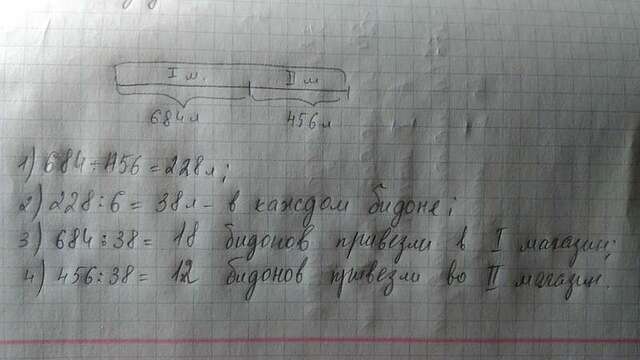 I м. II м
684л 456л
1) 684 ÷ 456 = 228л;
2) 228 : 6 = 38л - в каждом бидоне;
3) 684 : 38 = 18 бидонов привезли в I магазин;
4) 456 : 38 = 12 бидонов привезли во II магазин.